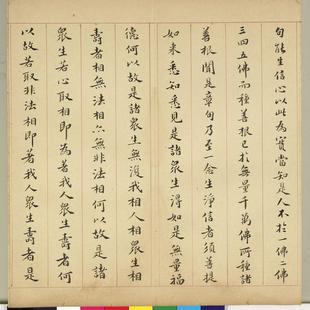 句能生信心以此為實當知是人不於一佛二佛
三四五佛而種善根已於無量千萬佛所種諸
善根聞是章句乃至一念生淨信者須菩提
如來悉知悉見是諸眾生得如是無量福
德何以故是諸眾生無復我相人相眾生相
壽者相無法相亦無非法相何以故是諸
眾生若心取相即為著我人眾生壽者何
以故若取非法相即著我人眾生壽者是